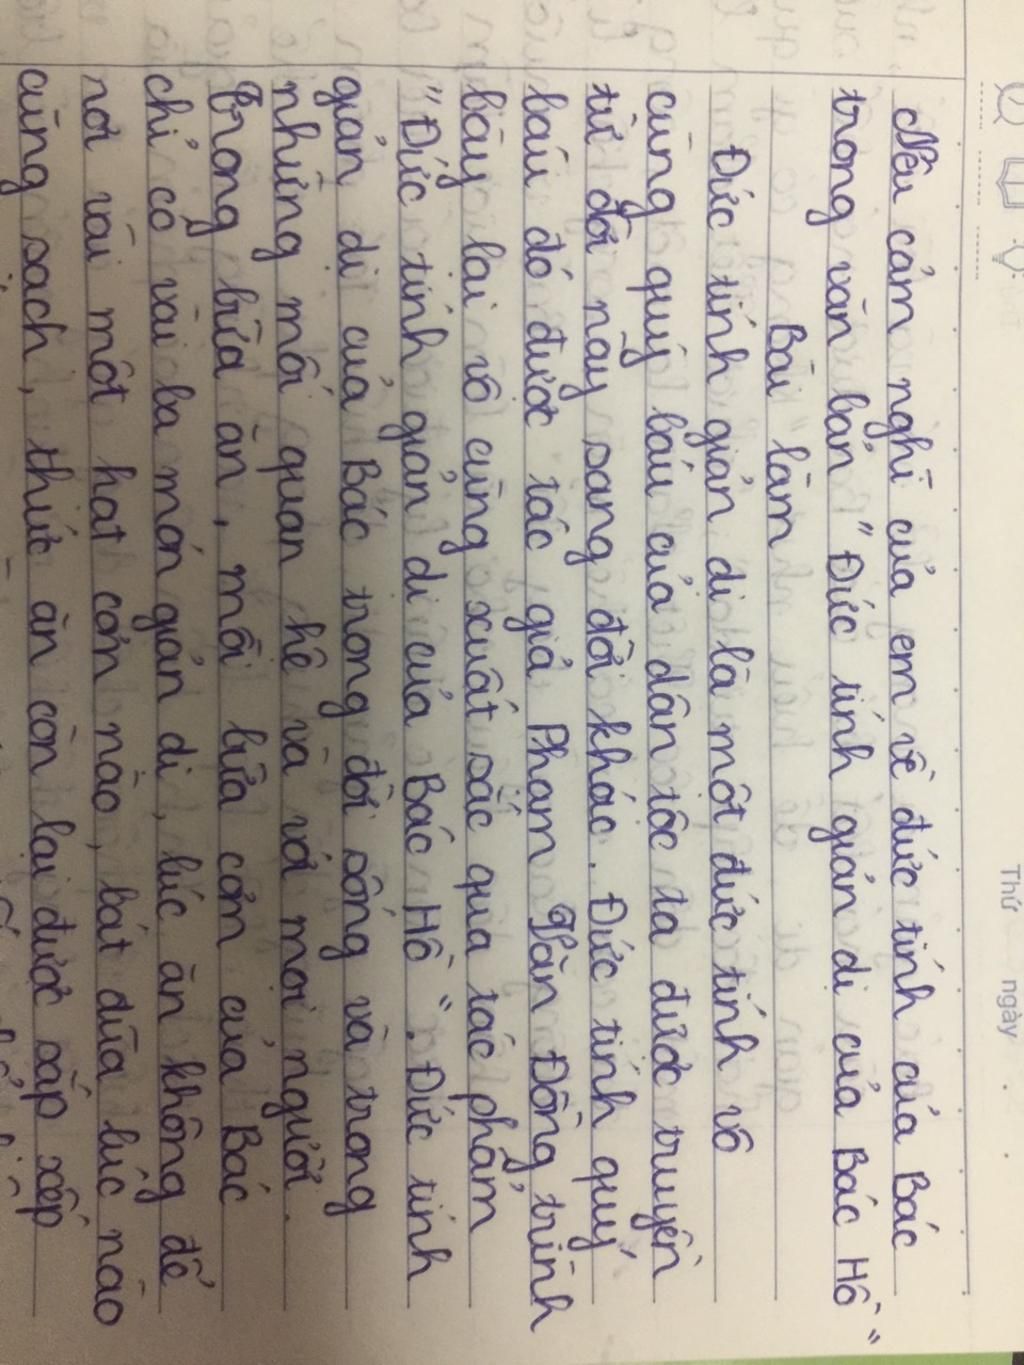 Thứ ngày
Nêu cảm nghĩ của em về đức tính của Bác
trong văn bản "Đức tính giản dị của Bác Hồ"
Bài làm
Đức tính giản dị là một đức tính vô
cùng quý báu của dân tộc ta được truyền
từ đời này sang đời khác. Đức tính quý
báu đó được tác giả Phạm Văn Đồng trình
bày lại vô cùng xuất sắc qua tác phẩm
"Đức tính giản dị của Bác Hồ". Đức tính
giản dị của Bác trong đời sống và trong
những mối quan hệ và với mọi người.
Trong bữa ăn, mỗi bữa cơm của Bác
chỉ có vài ba món giản di, lúc ăn không để
rơi vãi một hạt cơm nào, bát đũa lúc nào
cũng sạch, thức ăn còn lại được sắp xếp